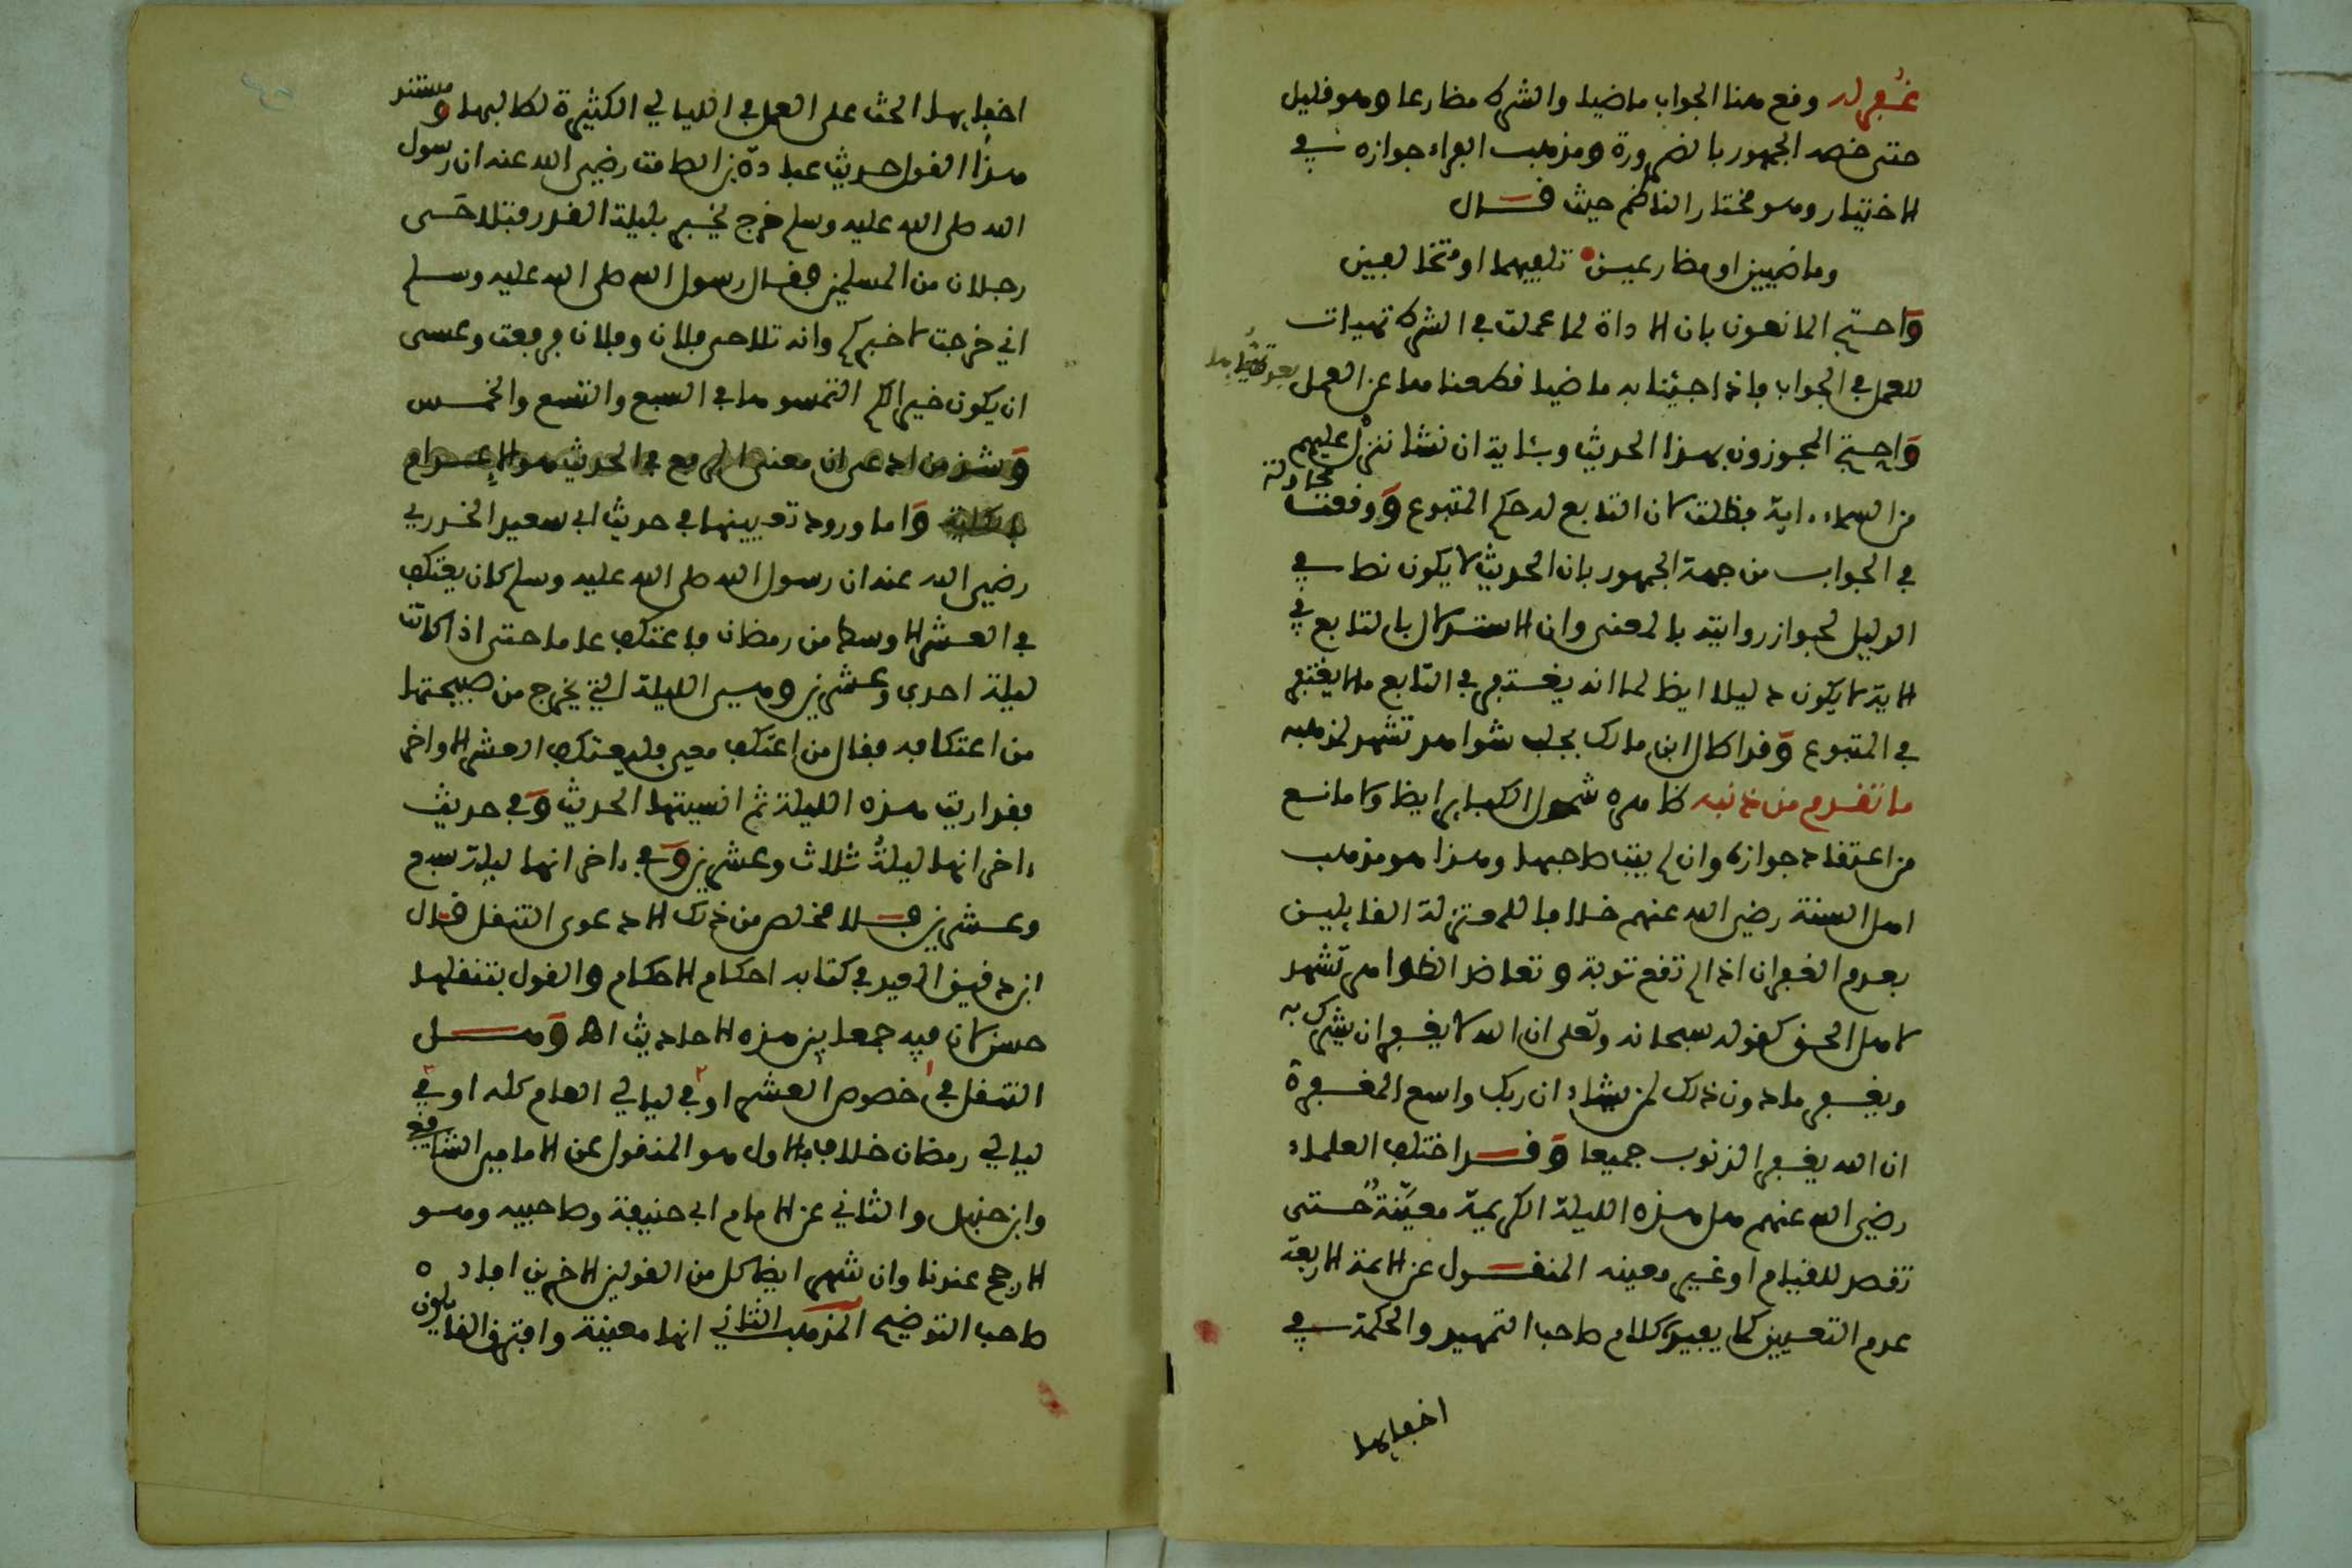 غفر له وقع هنا الجواب ماضيا والشرط مضارعا وهو قليل
حتى خصه الجمهور بالضرورة ومذهب الفراء جوازه في
الاختيار وهو مختار الناظم حيث قال
وماضيين او مضارعين تلفيهما او متخالفين
واحتج المانعون بان الاداة لما عملت في الشرط تهيات
للعمل في الجواب فاذا جيئنا به ماضيا قطعنا ها عن العمل بعد تهيئها
واحتج المجوزون بهذا الحديث وبئاية ان نشا ننزل عليهم
من السماء ءاية فظلت لان التابع له حكم المتبوع ووقعت محاورة
في الجواب من جهة الجمهور بان الحديث لا يكون نصا في
الدليل لجواز روايته بالمعنى وان الاستدلال بالتابع في
الاية لا يكون دليلا ايضا لما انه يغتفر في التابع ما لا يغتفر
في المتبوع وقد اطال ابن مالك بجلب شواهد تشهد لمذهبه
ما تقدم من ذنبه ظاهره شمول الكبائر ايضا ولا مانع
من اعتقاد جوازه وان لم يتب صاحبها وهذا هو مذهب
اهل السنة رضي الله عنهم خلافا للمعتزلة القايلين
بعدم الغفران اذا لم تقع توبة وتعاضد الظواهر تشهد
لاهل الحق كقوله سبحانه وتعلى ان الله لا يغفر ان يشرك به
ويغفر ما دون ذلك لمن يشاء ان ربك واسع المغفرة
ان الله يغفر الذنوب جميعا وقد اختلف العلماء
رضي الله عنهم هل هذه الليلة الكريمة معينة حتى
تقصد للقيام او غير معينه المنقول عن الايمة الاربعة
عدم التعيين كما يفيده كلام صاحب التمهيد والحكمة في
اخفايها
اخفايها الحث على العمل في الليالي الكثيرة لطالبها ومستند
هذا القول حديث عبادة بن الصامت رضي الله عنه ان رسول
الله صلى الله عليه وسلم خرج يخبر بليلة القدر فتلاحى
رجلان من المسلمين فقال رسول الله صلى الله عليه وسلم
اني خرجت لاخبركم وانه تلاحى فلان وفلان فرفعت وعسى
ان يكون خيرا لكم التمسوها في السبع والتسع والخمس
وشذ من ادعى ان معنى الرفع في الحديث هو الاعدام
بالكلية واما ورود تعيينها في حديث ابي سعيد الخدري
رضي الله عنه ان رسول الله صلى الله عليه وسلم كان يعتكف
في العشر الاوسط من رمضان فاعتكف عاما حتى اذا كانت
ليلة احدى وعشرين وهي الليلة التي يخرج من صبيحتها
من اعتكافه فقال من اعتكف معي فليعتكف العشر الاواخر
فقد اريت هذه الليلة ثم انسيتها الحديث وفي حديث
ءاخر انها ليلة ثلاث وعشرين وفي ءاخر انها ليلة سبع
وعشرين فلا مخلص من ذلك الا دعوى التنقل قال
ابن دقيق العيد في كتابه احكام الاحكام والقول بتنقلها
حسن لان فيه جمعا بين هذه الاحاديث اه وهل
التنقل في خصوص العشر او في ليالي العام كله او في
ليالي رمضان خلاف فالاول هو المنقول عن الامامين الشافعي
وابن حنبل والثاني عن الامام ابي حنيفة وصاحبيه وهو
الارجح عندنا وان شهر ايضا كل من القولين الاخرين افاده
صاحب التوضيح المذهب الثاني انها معينة وافترق القايلون